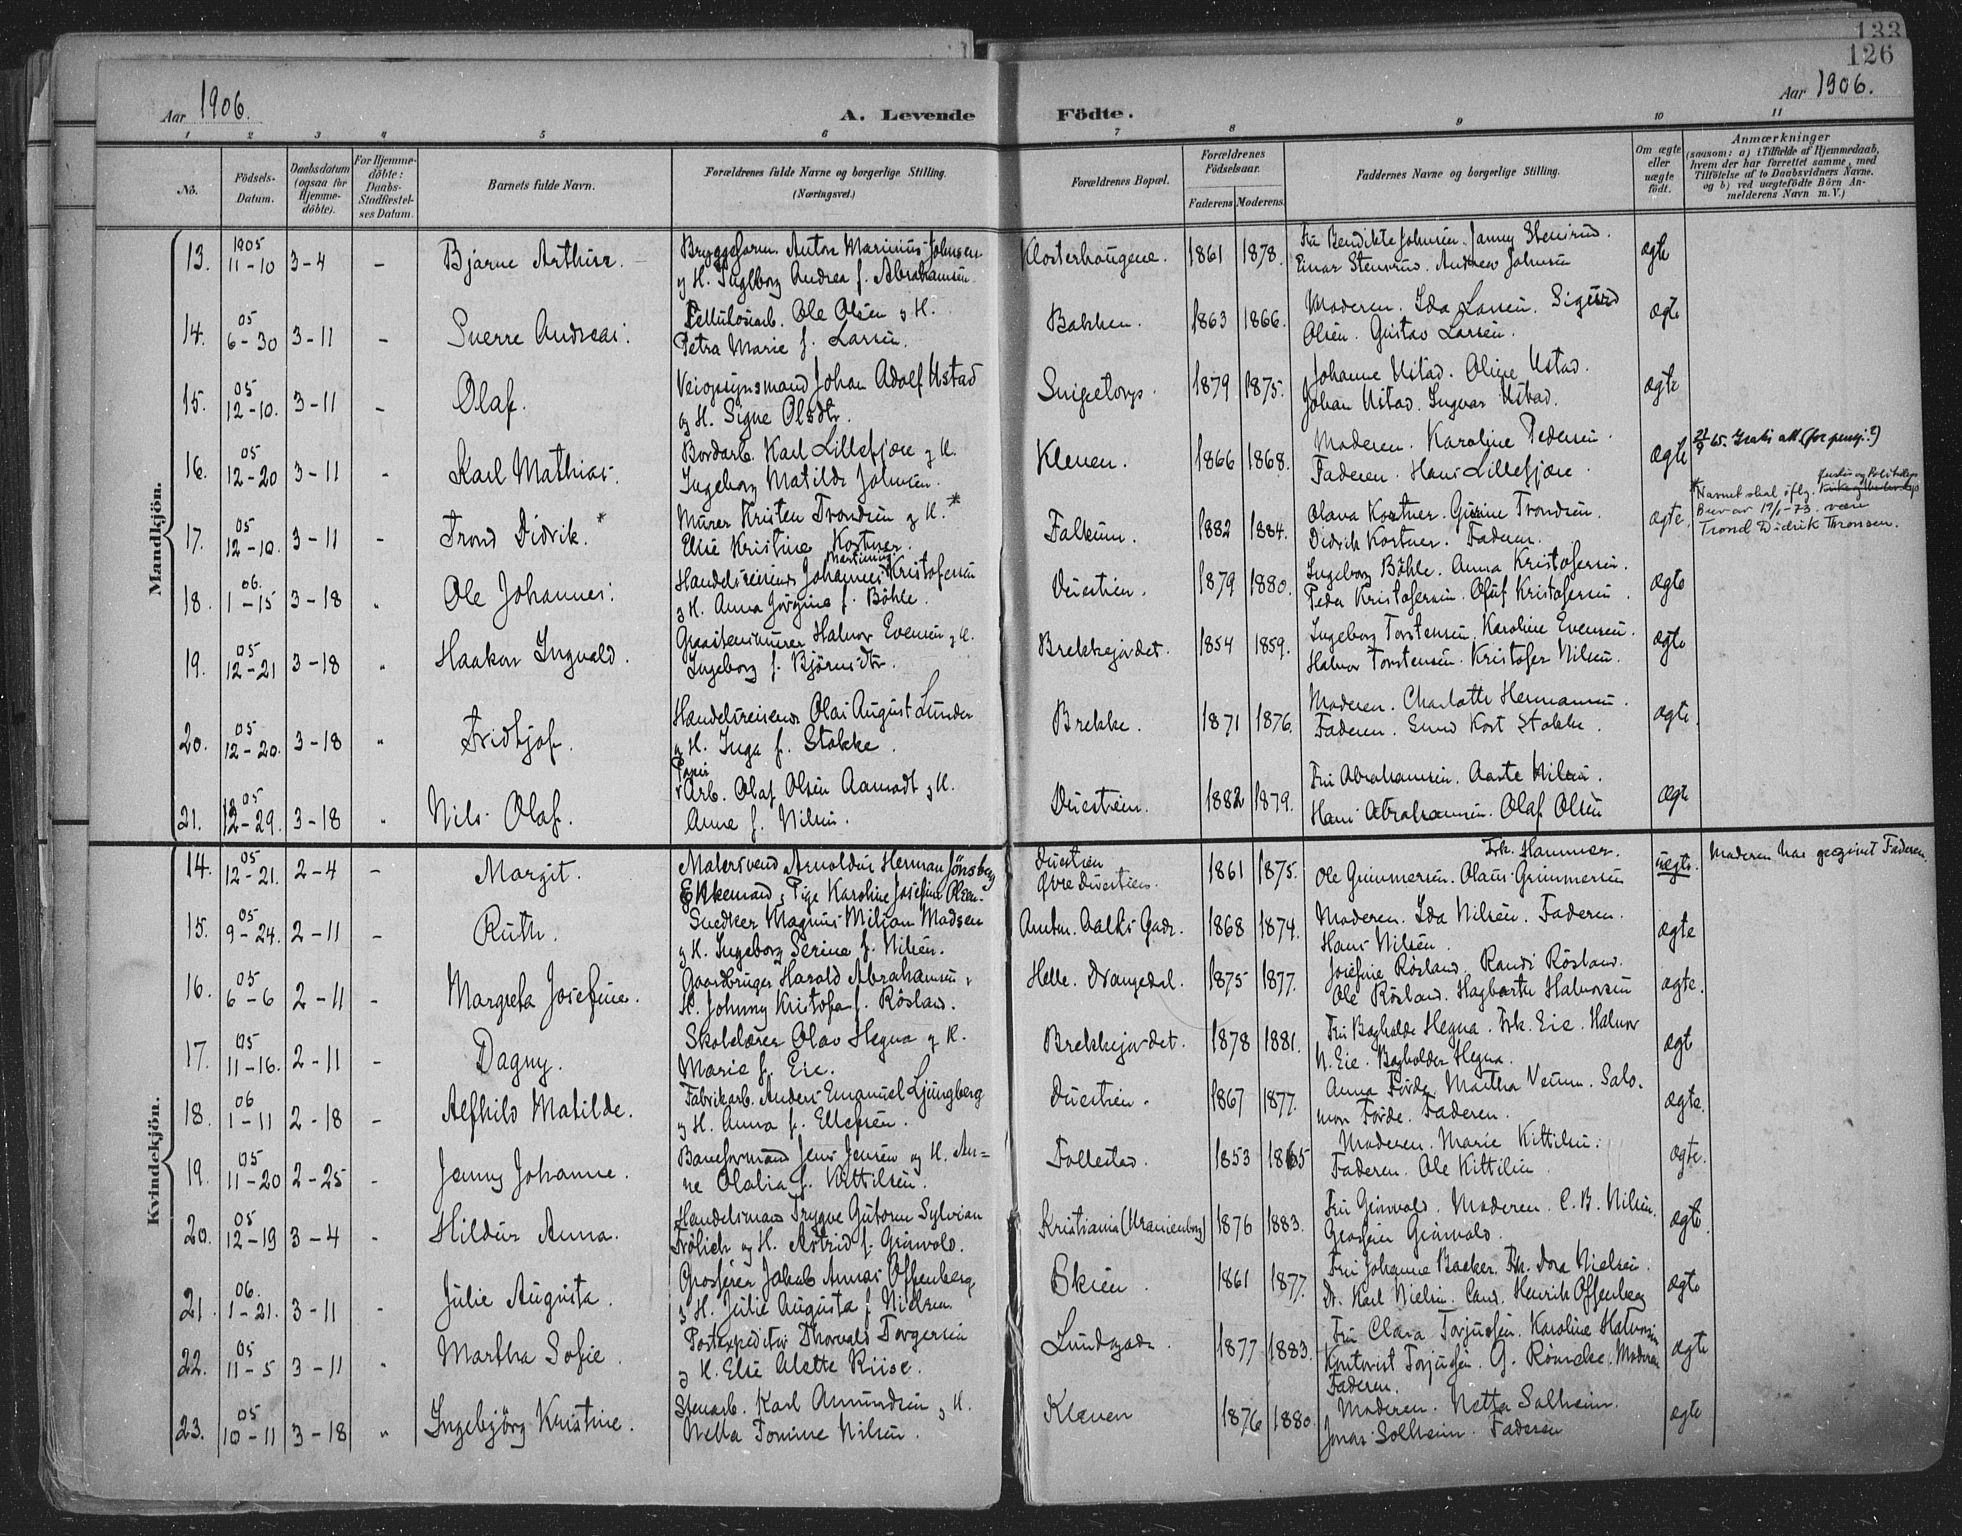 133
126
Aar 1906.
A. Levende Födte.
Aar 1906.
1 2 3 4 5 6 7 8 9 10 11
No.
Födsels-Datum.
Daabsdatum (ogsaa for Hjemme-döbte).
For Hjemme-döbte: Daabs-Stadfæstel-ses Datum.
Barnets fulde Navn.
Forældrenes fulde Navne og borgerlige Stilling. (Næringsvei.)
Forældrenes Bopæl.
Forældrenes Födselsaar.
Faderens Moderens.
Faddernes Navne og borgerlige Stilling.
Om ægte eller uægte födt.
Anmærkninger
(saasom: a) i Tilfælde af Hjemmedaab, hvem der har forrettet samme, med Tilföielse af to Daabsvidners Navne. og b) ved uægtefödte Börn Anmelderens Navn m. V.)
Mandkjön.
13. 1905 11-10 3-4 - Bjarne Arthur. Bryggeform. Anton Marinius Johnsen Klosterhaugene. 1861 1878. Fru Bendikte Johnsen. Jenny Stenrud. ægte
og H. Inglborg Andrea f. Abrahamsen. Einar Stenrud. Andreas Johnsen
14. 05 6-30 3-11 - Sverre Andreas. Cellulosearb. Ole Olsen og H. Bakken. 1863 1866. Moderen. Ida Larsen. Sigurd ægte
Petra Marie f. Larsen. Olsen. Gustav Larsen.
15. 05 12-10. 3-11 - Olaf. Veiopsynsmand Johan Adolf Ustad Snipetorp. 1879 1875. Johanne Ustad. Oline Ustad. ægte
og H. Signe Olsdtr. Johan Ustad. Ingvar Ustad.
16. 05 12-20 3-11 - Karl Mathias. Bordarb. Karl Lillefjære og H. Kleven. 1866 1868. Moderen. Karoline Pedersen. ægte 65. Gratis att. (for pensj.?)
Ingeborg Matilde Johnsen. Faderen. Hans Lillefjære.
17. 05 12-10. 3-11 - Trond Didrik. * Murer Kristen Trondsen og H. * Falkum. 1882 1884. Olava Kostner. Gusine Trondsen. ægte. * Navnet skal iflg. Justis og Politideps
Elise Kristine Kostner. Didrik Kostner. Faderen. Brev av 19/1-73. være
Trond Didrik Thronsen.
18. 06. 1-15 3-18 " Ole Johannes. Handelsreisende Johannes Martinius Kristofersen Duestien. 1879 1880. Ingeborg Böhle. Anna Kristofersen. ægte
og H. Anna Jörgine f. Böhle. Peder Kristofersen. Oluf Kristofersen.
19. 05 12-21 3-18 " Haakon Ingvald. Graastensmurer Halvor Evensen og H. Brekkejordet. 1854 1859. Ingeborg Torstensen. Karoline Evensen. ægte
Ingeborg f. Björnsdtr. Halvor Torstensen. Kristofer Nilsen.
20. 05 12-20. 3-18 " Fridtjof. Handelsreisende Olai August Lunder Brekke. 1871 1876. Moderen. Charlotte Hermansen. ægte.
og H. Inga f. Stokke. Faderen. Kort Stokke
21. 05 12-29. 3-18 " Nils Olaf. Papir Arb. Olaf Olsen Aamodt og H. Duestien. 1882 1879. Fru Abrahamsen. Aaste Nilsen. ægte
Anne f. Nilsen. Hans Abrahamsen. Olaf Olsen
Kvindekjön.
14. 05 12-21. 2-4 - Margit. Malersvend Arnoldus Herman Jönsberg Duestien 1861 1875. Frk. Hammer. uægte. Moderen har opgivet Faderen.
Enkemand, Pige Karoline Josefine Olsen. Øvre Duestien. Ole Grimmersen. Olaus Grimmersen
15. 05 9-24. 2-11 - Ruth. Snedker Magnus Miljan Madsen Amtm. Aalls Gade. 1868 1874. Moderen. Ida Nilsen. Faderen. ægte
og H. Ingeborg Serine f. Nilsen. Hans Nilsen.
16. 05 6-6 2-11 - Margreta Josefine. Gaardbruger Harald Abrahamsen, Helle. Drangedal. 1875 1877. Josefine Rösland. Randi Rösland. ægte.
H. Johnny Kristofa f. Rösland. Ole Rösland. Hagbarth Halvorsen
17. 05 11-16. 2-11 - Dagny. Skolelærer Olav Hegna og H. Brekkejordet. 1878 1881. Fru Hegna. Frk. Eie. Halvor ægte
Marie f. Eie. N. Eie. Bagholder Hegna.
18. 06 1-11 2-18 - Alfhild Matilde. Fabrikarb. Anders Emanuel Ljungberg Duestien. 1867 1877. Anna Förde. Martha Venum. Salo- ægte.
og H. Anna f. Ellefsen. mon Förde. Faderen.
19. 05 11-20 2-25 - Jenny Johanne. Baneformand Jens Jensen og H. An= Follestad. 1853 1865 Moderen. Marie Kittilsen. ægte.
ne Olalia f. Kittilsen. Faderen. Ole Kittilsen.
20. 05 12-19 3-4 - Hildur Anna. Handelsmand Trygve Gutorm Sylvian Kristiania (Uranienborg) 1876 1883. Fru Grinvold. Moderen. C. B. Nilsen. ægte
Frölich og H. Astrid f. Grinvold. Grosserer Grinvold.
21. 06. 1-21. 3-11 - Julie Augusta. Grosserer Jakob Annas Offenberg, Skien. 1861 1877. Fru Johanne Backer. Frk. Dora Nielsen. ægte
og H. Julie Augusta f. Nielsen. Dr. Karl Nielsen. Cand. Henrik Offenberg
22. 05 11-5 3-11 " Martha Sofie. Postexpeditör Thorvald Torgersen Lundegade. 1877 1883. Fru Clara Torjusen. Karoline Halvorsen ægte
og H. Elise Alette Riise. Torjusen. G. Römcke. Moderen
Faderen.
23. 05 10-11 3-18 " Ingebjörg Kristine. Stenarb. Karl Amundsen og H. Kleven 1876 1880. Moderen. Netta Solheim. ægte
Nella Tomine Nilsen. Jonas Solheim. Faderen